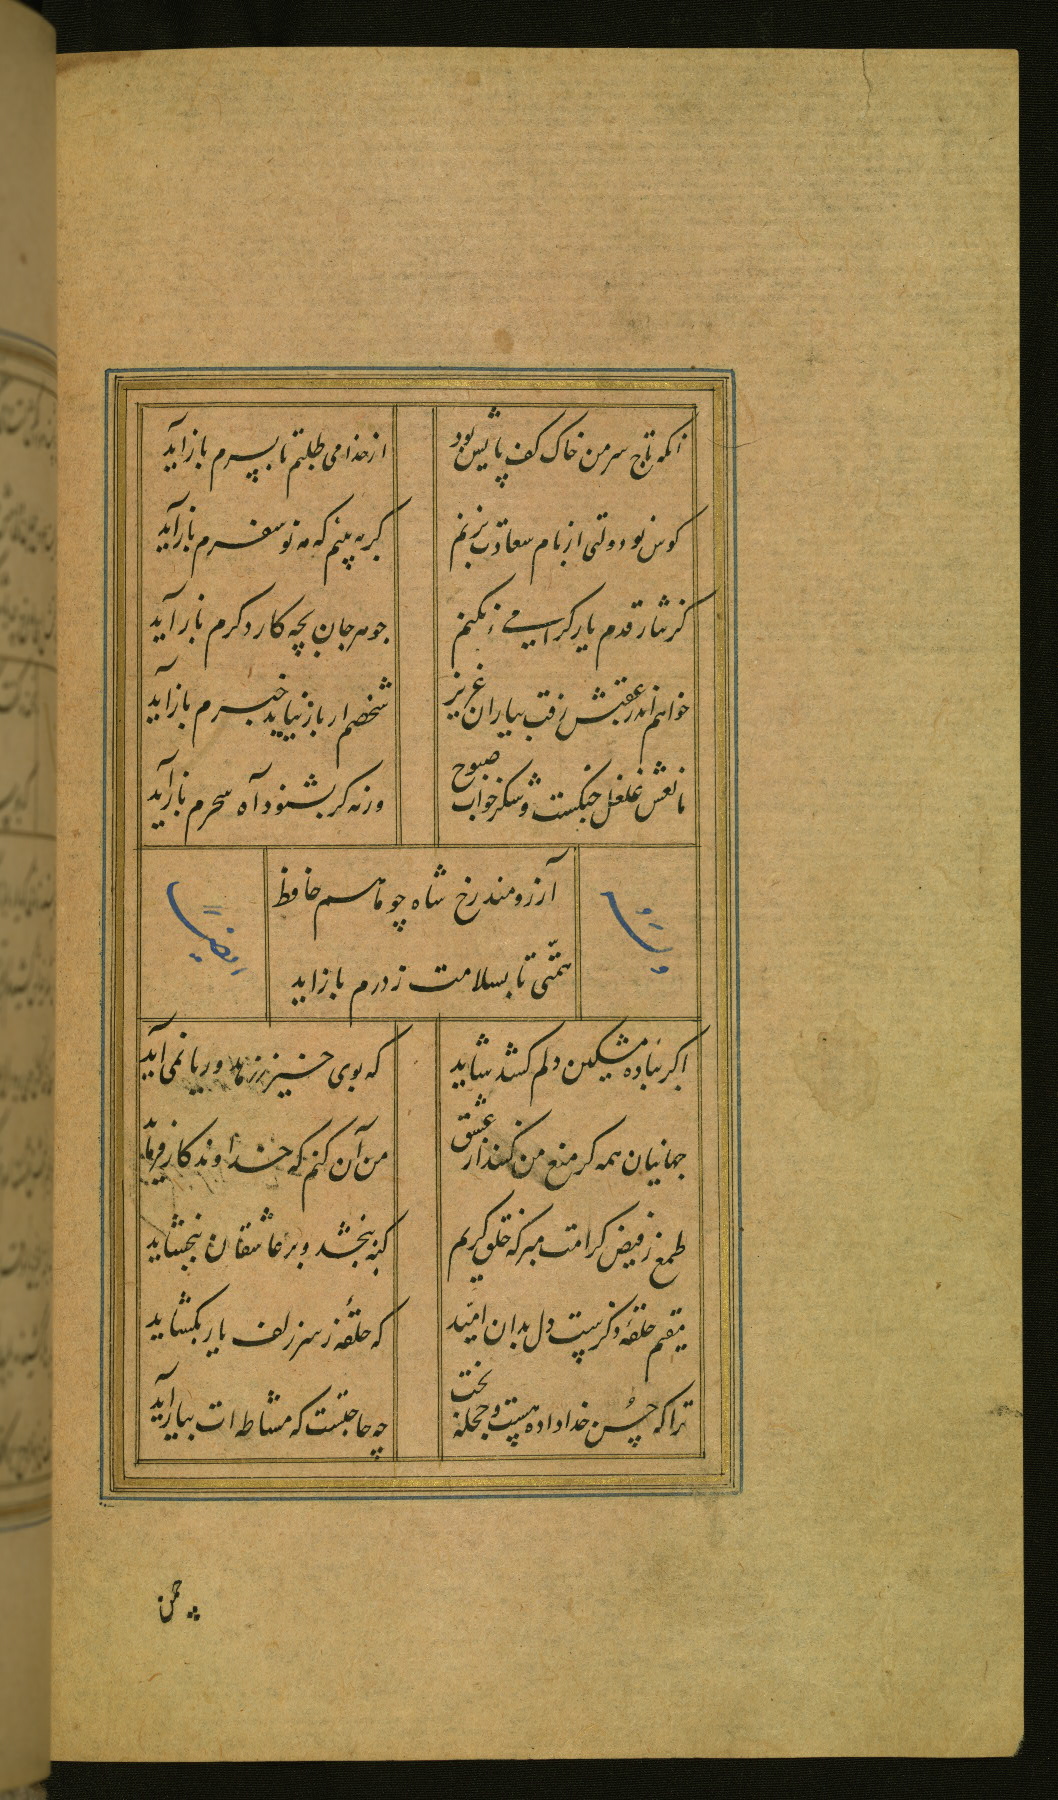 آنکه تاج سر من خاک کف پایش بود
از خدا می طلبم تا بسرم بازآید
کوس نو دولتی از بام سعادت بزنم
کر به پینم که مه نو سفرم بازآید
کر نثار قدم یار کرامی نکنم
جوهر جان بچه کار دکرم بازآید
خواهم اندر عقبش رفت بیاران عزیز
شخصم ار باز نیاید خبرم بازآید
مانعش غلغل چنکست و شکر خواب صبوح
ورنه کر بشنود آه سحرم بازآید
آرزومند رخ شاه چو ماهم حافظ
همتی تا بسلامت ز درم بازاید
وله
ایضا
اکر بباده مشکین دلم کشد شاید
که بوی خیر ز زهد و ریا نمی آید
جهانیان همه کر منع من کنند از عشق
من آن کنم که خداوندکار فرماید
طمع ز فیض کرامت مبر که خلق کریم
کنه ببخشد و بر عاشقان ببخشاید
مقیم حلقهٔ ذکرست دل بدان امید
که حلقهٔ ز سر زلف یار بکشاید
ترا که حسن خداداده هست و حجلهٔ بخت
چه حاجتست که مشاطه ات بیاراید
چمن